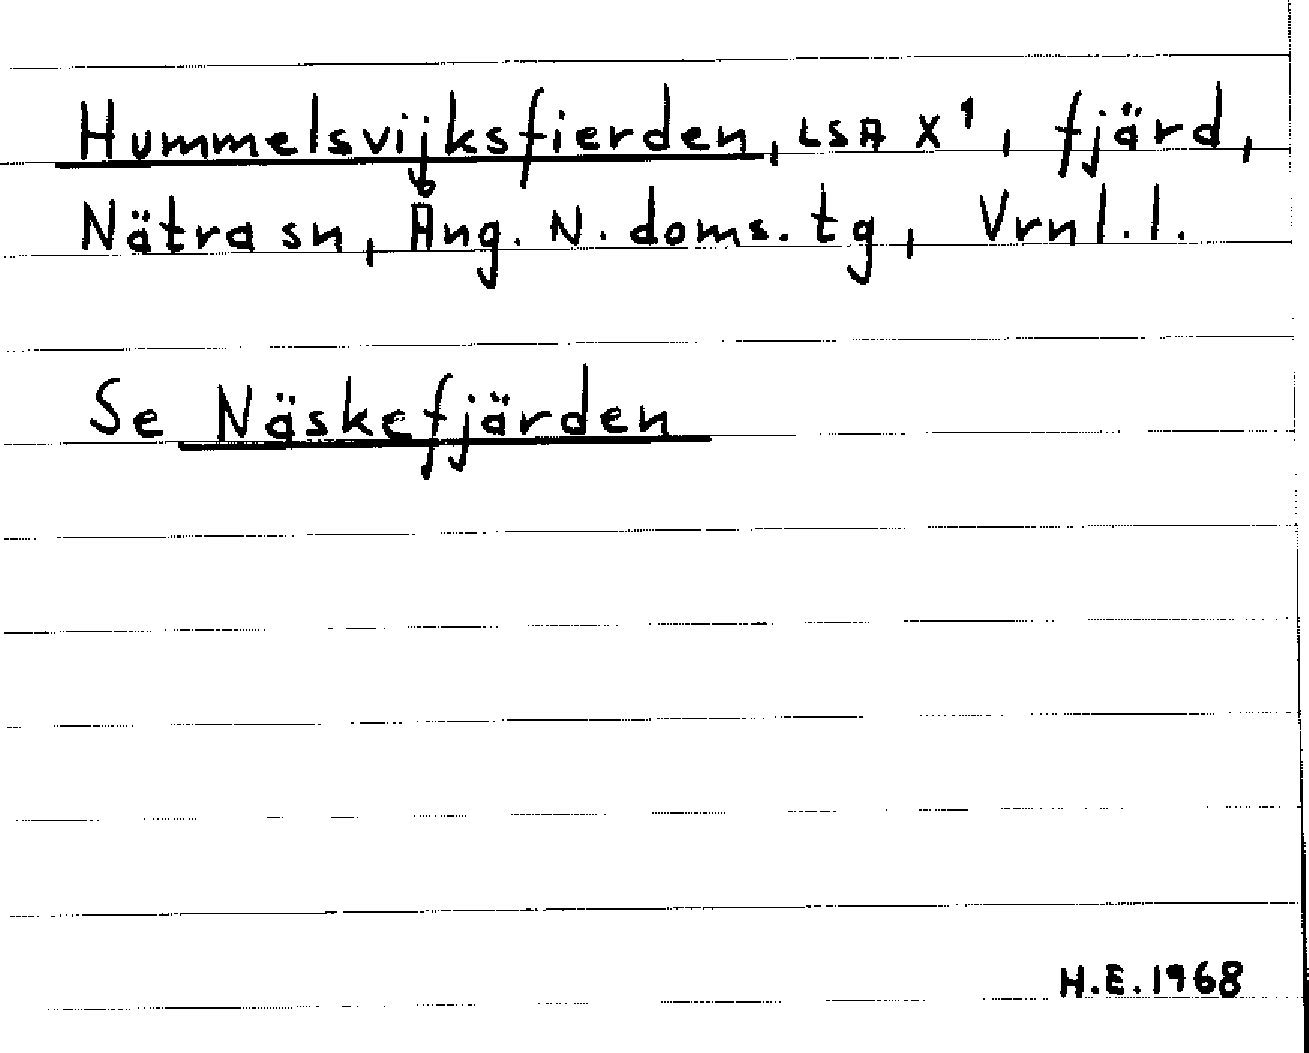 Hummelsvijksfierden, LSA X¹, fjärd,
Nätra sn, Ång. N. doms. tg, Vrnl.l.
Se Näskefjärden
H.E. 1968